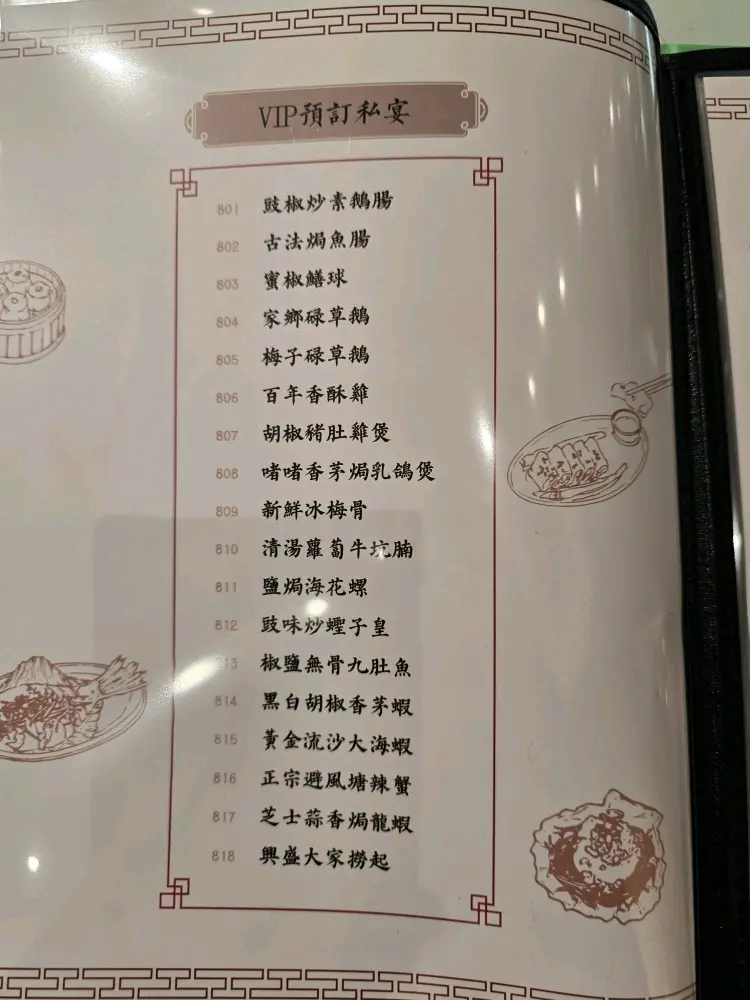 VIP預訂私宴
801 豉椒炒素鵝腸
802 古法焗魚腸
803 蜜椒鱔球
804 家鄉碌草鵝
805 梅子碌草鵝
806 百年香酥雞
807 胡椒豬肚雞煲
808 啫啫香茅焗乳鴿煲
809 新鮮冰梅骨
810 清湯蘿蔔牛坑腩
811 鹽焗海花螺
812 豉味炒蟶子皇
813 椒鹽無骨九肚魚
814 黑白胡椒香茅蝦
815 黃金流沙大海蝦
816 正宗避風塘辣蟹
817 芝士蒜香焗龍蝦
818 興盛大家撈起